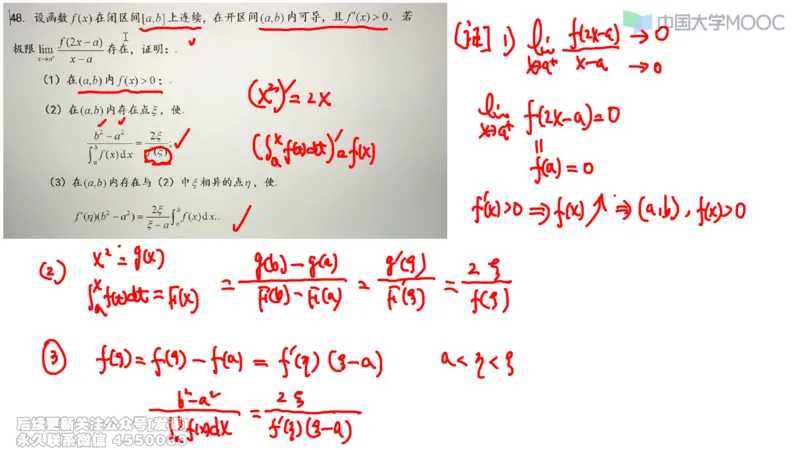 48. 设函数 f(x) 在闭区间[a,b]上连续，在开区间(a,b)内可导，且 f'(x)>0．若
极限 lim_{x→a⁺} f(2x−a)/(x−a) 存在，证明：
（1）在(a,b)内 f(x)>0；
（2）在(a,b)内存在点ξ，使
(b²−a²)/∫_a^b f(x)dx = 2ξ/f(ξ)；
（3）在(a,b)内存在与（2）中ξ相异的点η，使
f'(η)(b²−a²)= 2ξ/(ξ−a) ∫_a^b f(x)dx．
(x²)' = 2x
(∫_a^x f(t)dt)' = f(x)
中国大学MOOC
[证] 1) lim_{x→a⁺} f(2x−a)/(x−a) →0 →0
lim_{x→a⁺} f(2x−a)=0
॥
f(a)=0
f'(x)>0 ⇒ f(x)↗ ⇒ (a,b), f(x)>0
(2) x² = g(x)
∫_a^x f(t)dt = F(x)
= (g(b)−g(a))/(F(b)−F(a)) = g'(ξ)/F'(ξ) = 2ξ/f(ξ)
③ f(ξ)=f(ξ)−f(a) = f'(η)(ξ−a) a<η<ξ
(b²−a²)/∫_a^b f(x)dx = 2ξ/(f'(η)(ξ−a))
后续更新关注公众号[发瓤]
永久联系微信 4550068